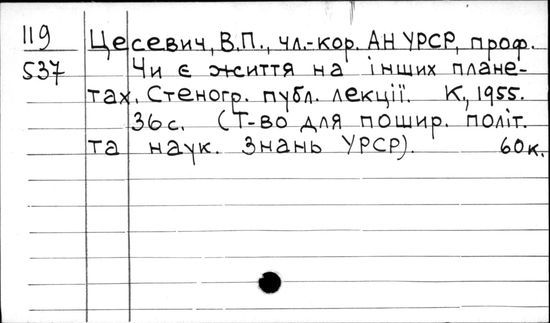 119 Цесевич, В.П., чл.-кор. АН УРСР, проф.
537 Чи є життя на інших плане-
тах. Стеногр. публ. лекції. К., 1955.
36 с. (Т-во для пошир. політ.
та наук. Знань УРСР). 60 к.